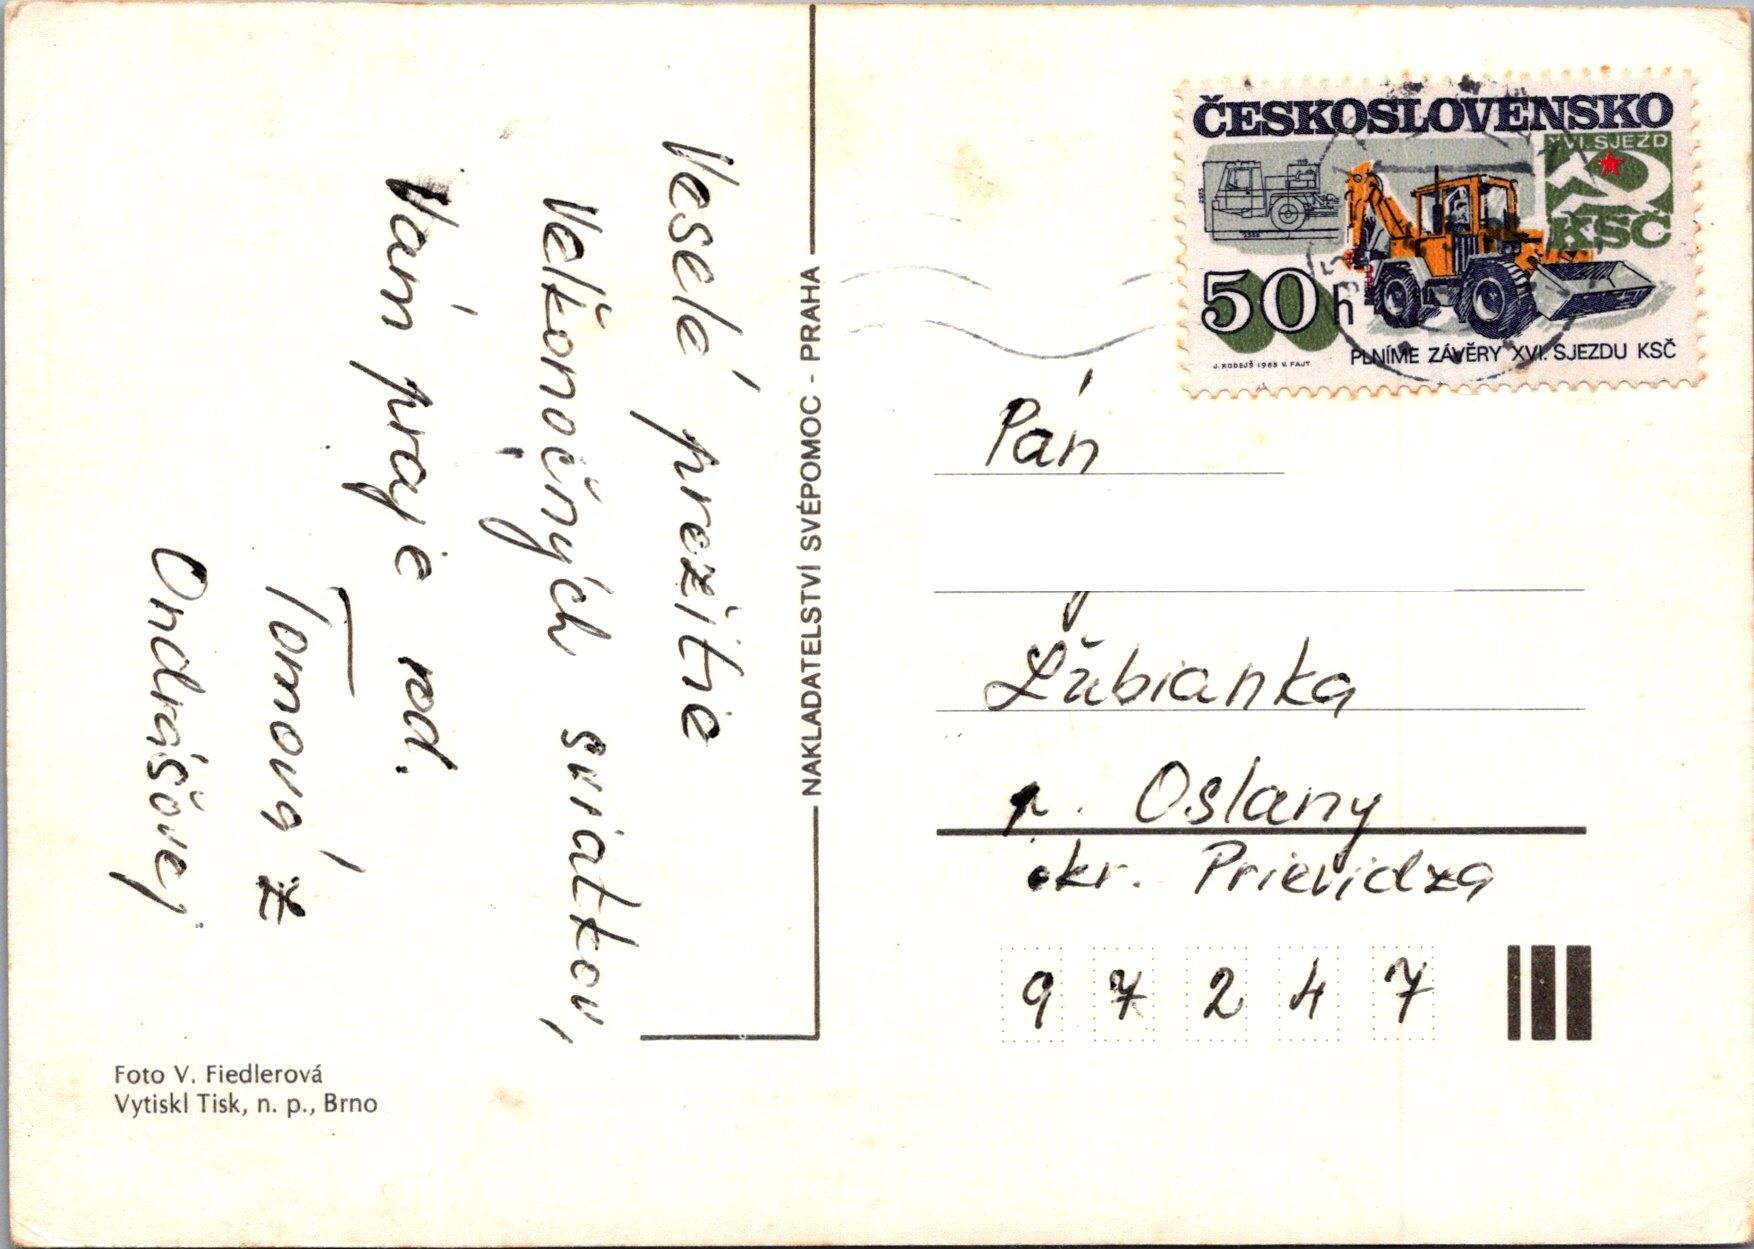 Veselé prežitie
Veľkonočných sviatkov,
Vám praje rod.
Tomová z
Ondrášovej
Foto V. Fiedlerová
Vytiskl Tisk, n. p., Brno
NAKLADATELSTVÍ SVÉPOMOC - PRAHA
ČESKOSLOVENSKO
XVI. SJEZD
KSČ
50 h
J. KODEJŠ 1985 V. FAJT
PLNÍME ZÁVĚRY XVI. SJEZDU KSČ
Pán
Ľubianka
p. Oslany
okr. Prievidza
97247